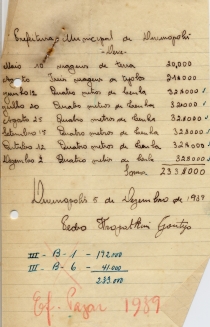 Prefeitura Municipal de Divinopolis
Deve
Maio 10 viagens de terra 20,000
Agosto Treis viagens de tijolo
Junho 12 Quatro metros de lenha 328000
Julho 20 Quatro metros de lenha 328000
Agosto 25 Quatro metros de lenha 328000
Setembro 17 Quatro metros de lenha 328000
Outubro 12 Quatro metros de lenha 328000
Dezembro 2 Quatro metros de lenha 328000
Soma 2338000
Divinopolis 5 de Dezembro de 1939
Pedro Gontijo
III - B - 1 - 192.000
III - B - 6 - 41.000
233.000
Pagar 1939